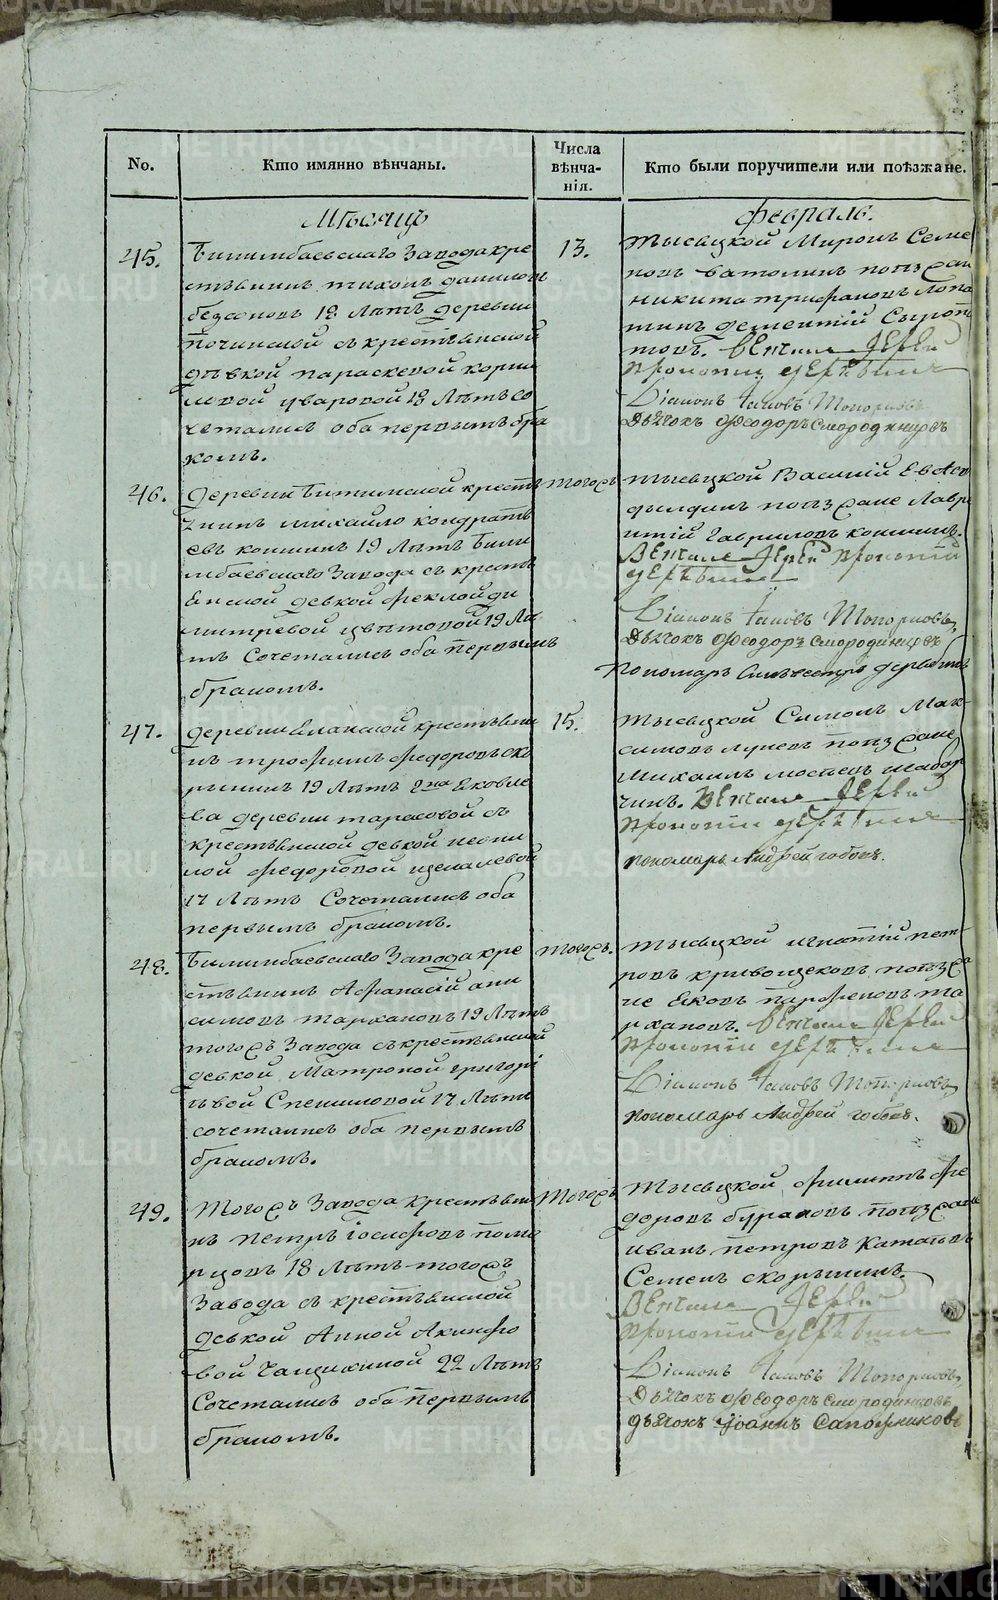 No.
Кто имянно вѣнчаны.
Числа
вѣнча-
нія.
Кто были поручители или поѣзжане.
Мѣсяцъ
Февраль.
45.
Билимбаевскаго Завода кре
стьянинъ тихонъ даниловъ
18 Лѣтъ деревни
починской съ крестьянской
дѣвкой параскевой корни
ловой уваровой 18 Лѣтъ со
четались оба первымъ бра
комъ.
13.
тысяцкой Миронъ Семе
новъ ватолинъ поѣзжан
никита трифановъ Лопа
тинъ дементій Сыропя
товъ. Венчалъ Іерей
Прокопій
Діаконъ Іаковъ Топорковъ
Дьячокъ Феодоръ Смородинцовъ
46.
деревни Битимской кресть
янинъ михайло кондрать
евъ кокшинъ 19 Лѣтъ били
мбаевскаго Завода съ кресть
янской девкой феклой ди
митревой цветовой 19 Лѣ
тъ Сочетались оба первымъ
бракомъ.
тогожъ
тысяцкой Василій
поѣзжане Лавре
нтій Гавриловъ кокшинъ.
Венчалъ Іерей Прокопій
Діаконъ Іаковъ Топорковъ,
Дьячокъ Феодоръ Смородинцовъ
Пономарь Сильвестръ дерябинъ
47.
деревни Еланской крестьяни
нъ трофимъ федоровъ ско
рынинъ 19 Лѣтъ 2на Яковле
ва деревни тарасовой съ
крестьянской девкой неони
лой федоровой щекалевой
17 Лѣтъ Сочетались оба
первымъ бракомъ.
15.
тысяцкой Симонъ Мак-
симовъ поѣзжане
Михаилъ
чинъ. Венчалъ Іерей
Прокопій
пономарь Андрей
48.
Билимбаевскаго Завода кре
стьянинъ Афанасій ани
симовъ тархановъ 19 Лѣтъ
тогожъ Завода съ крестьянской
девкой Матроной григорі
евой Спешиловой 17 Лѣтъ
сочетались оба первымъ
бракомъ.
тогожъ.
тысяцкой игнатій пет
ровъ кривощековъ поѣзжа
не Яковъ парфеновъ та
рхановъ. Венчалъ Іерей
Прокопій
Діаконъ Іаковъ Топорковъ,
пономарь Андрей
49.
Тогожъ Завода крестьяни
нъ петръ іосифовъ помо
рцовъ 18 Лѣтъ тогожъ
Завода съ крестьянской
девкой Анной Акинфо
вой Чащихиной 22 Лѣтъ
Сочетались оба первымъ
бракомъ.
тогожъ
тысяцкой филипъ фе
доровъ бураковъ поѣзжане
иванъ петровъ Катаевъ
Семенъ скорынинъ.
Венчалъ Іерей
Прокопій
Діаконъ Іаковъ Топорковъ,
Дьячокъ Феодоръ Смородинцовъ
Дьячокъ Іоаннъ Сапожниковъ
METRIKI.GASO-URAL.RU